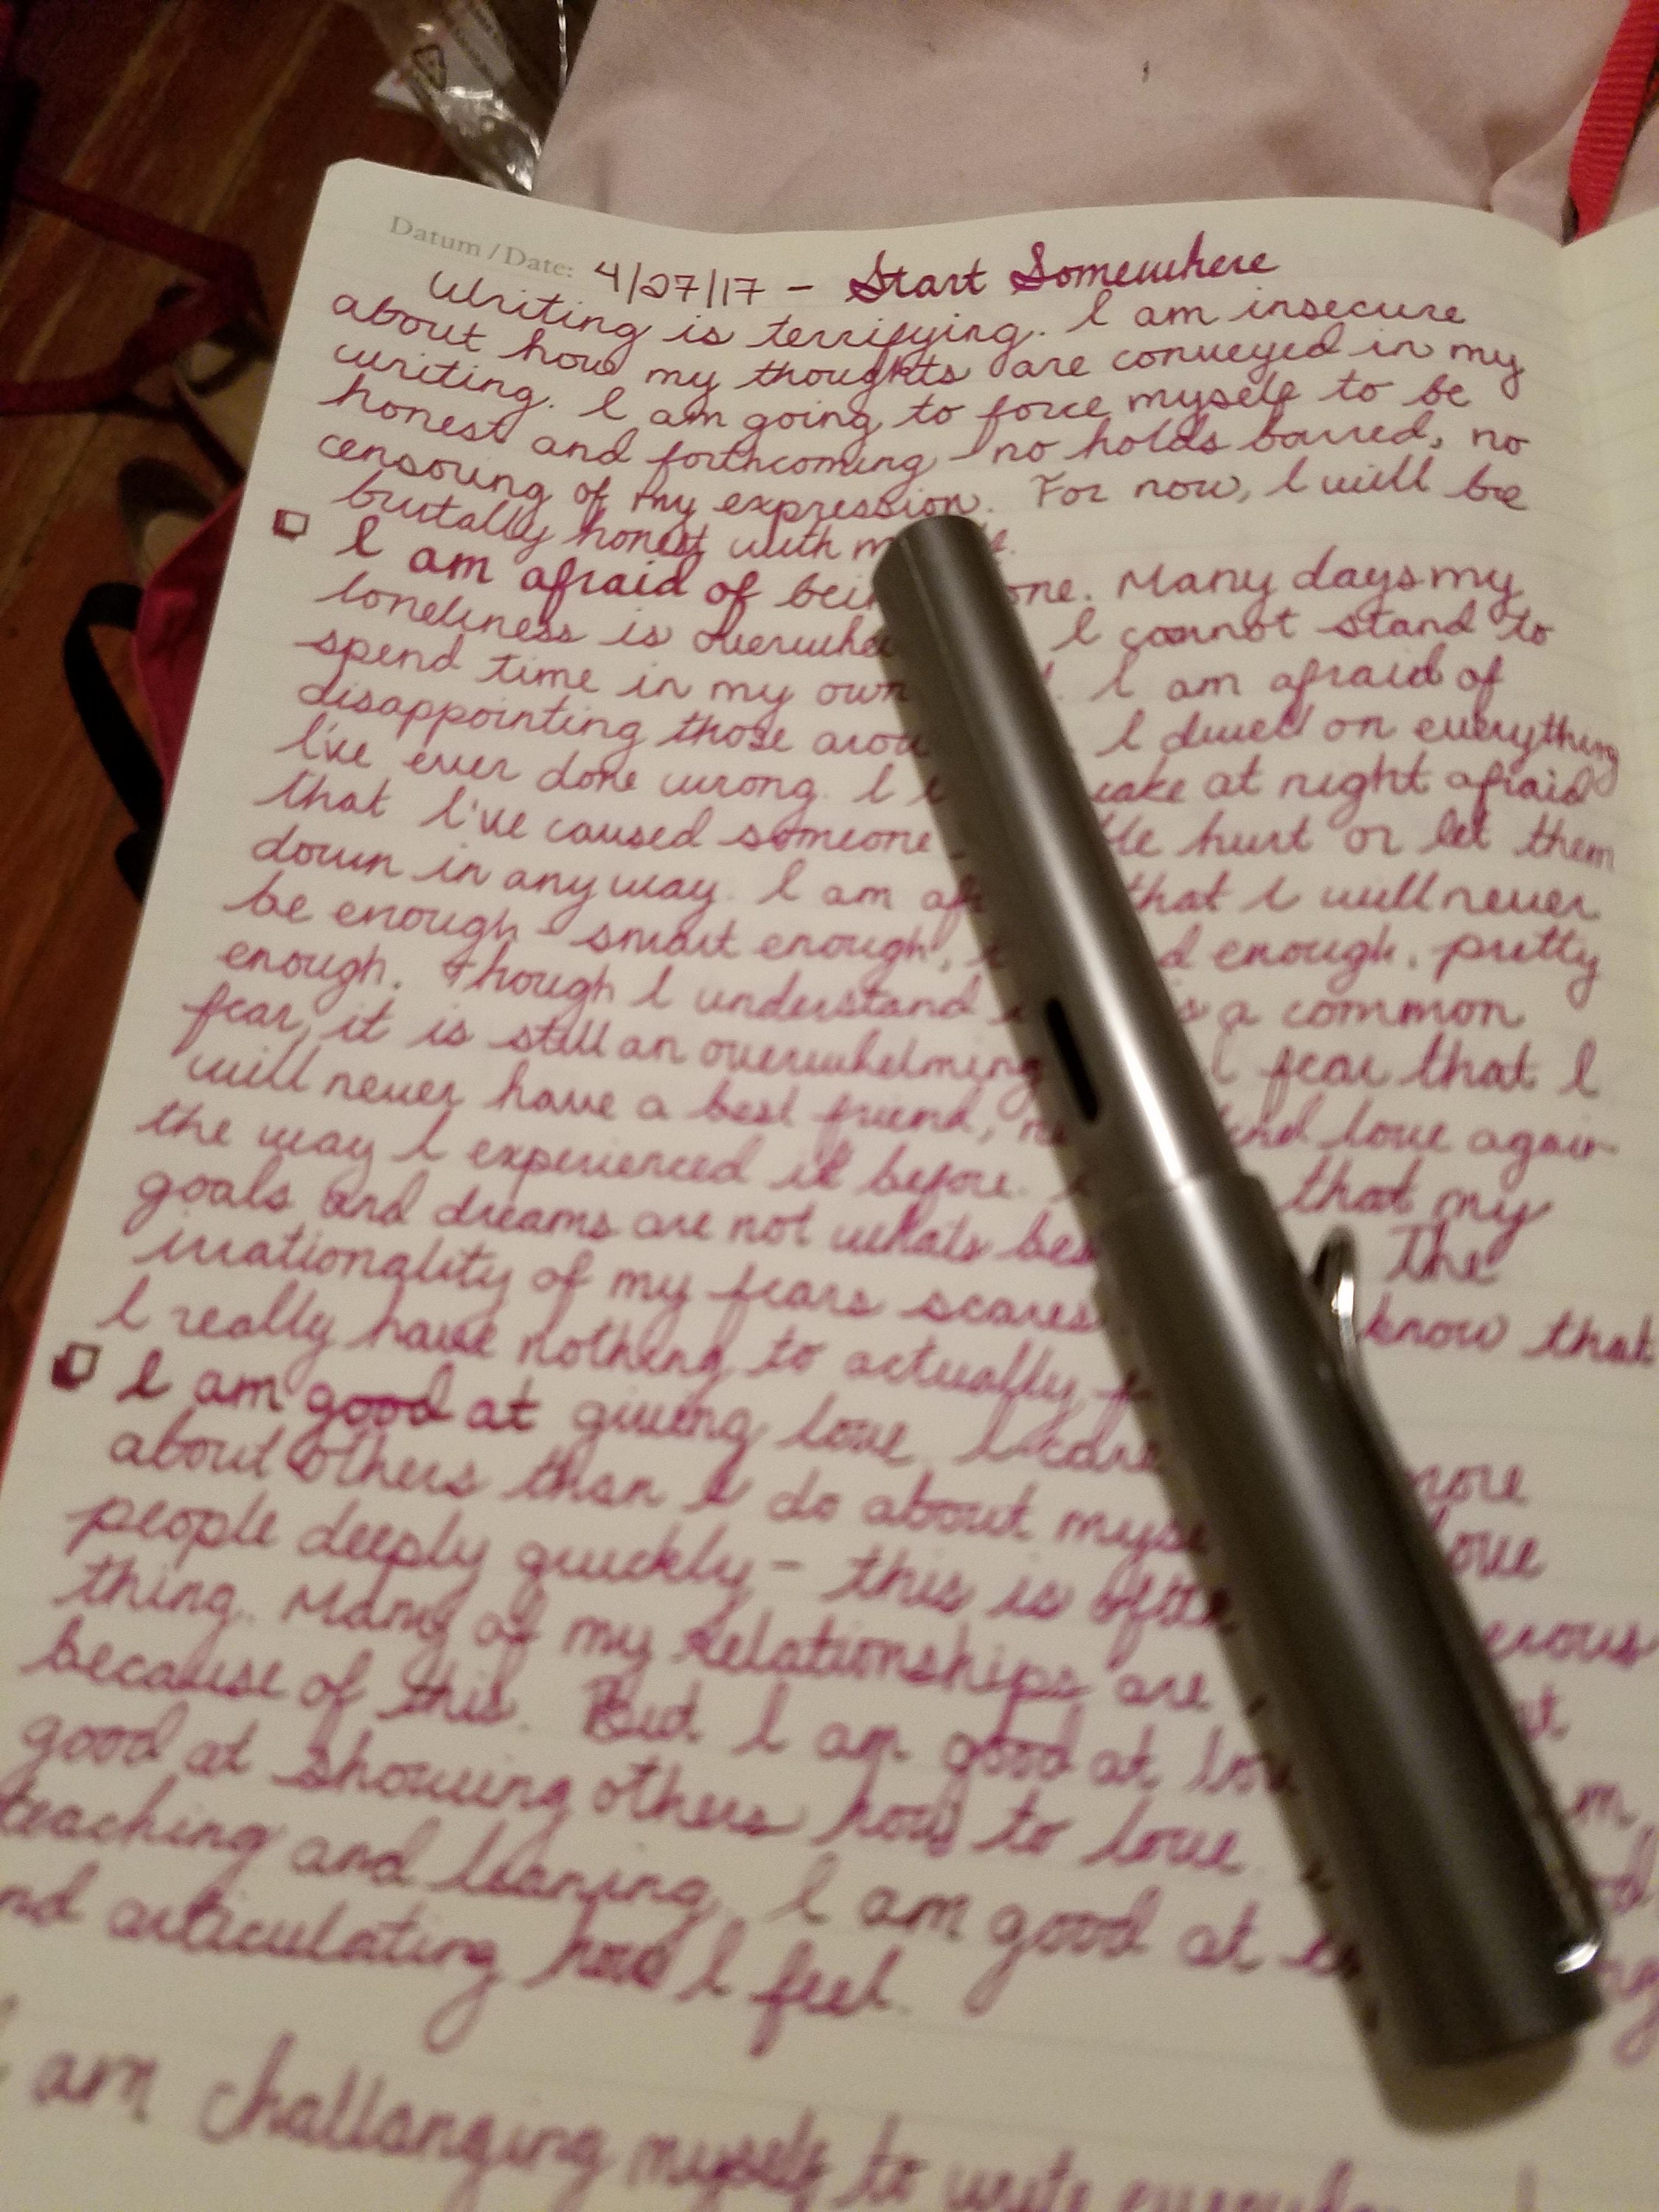 Datum / Date: 4/27/17 - Start Somewhere
Writing is terrifying. I am insecure
about how my thoughts are conveyed in my
writing. I am going to force myself to be
honest and forthcoming - no holds barred, no
censoring of my expression. For now, I will be
brutally honest with
I am afraid of Many days my
loneliness is I cannot stand to
spend time in my own I am afraid of
disappointing those I dwell on everything
I've ever done wrong. I at night afraid
that I've caused someone hurt or let them
down in any way. I am that I will never
be enough - smart enough, enough, pretty
enough. Though I understand is a common
fear, it is still an overwhelming I fear that I
will never have a best friend, love again
the way I experienced it before. that my
goals and dreams are not whats The
irrationality of my fears scares know that
I really have nothing to actually
I am good at giving love. I care more
about others than I do about love
people deeply quickly - this is
thing. Many of my relationships are
because of this. But I am good at
good at showing others how to love.
teaching and leaning. I am good at
articulating how I feel.
am challanging myself to write